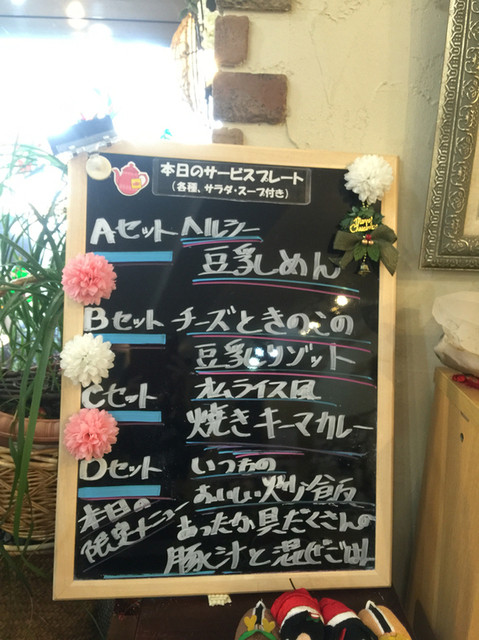 本日のサービスプレート
(各種、サラダ・スープ付き)
Aセット ヘルシー
豆乳しめん
Bセット チーズときのこの
豆乳リゾット
Cセット オムライス風
焼きキーマカレー
Dセット いつもの
おいしい炒り飯
本日の
限定メニュー
あったか具だくさんの
豚汁と混ぜごはん